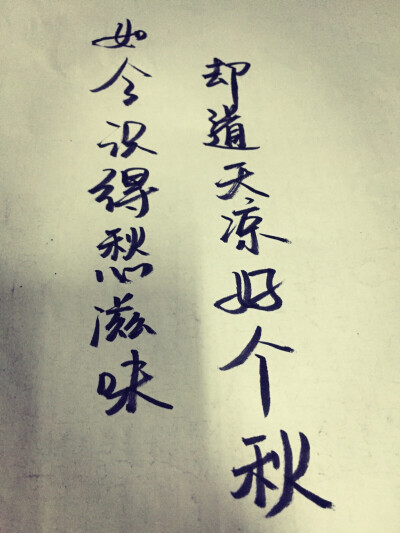 如今识得愁滋味
却道天凉好个秋